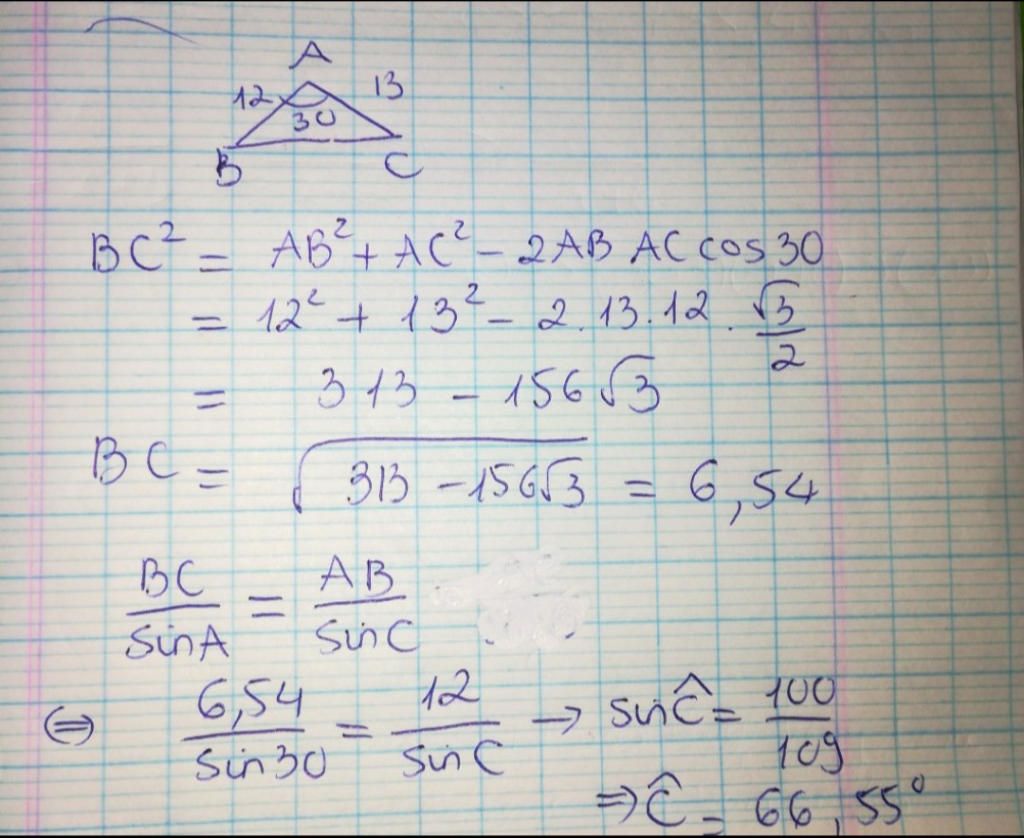 A
12 13
30
B C
BC² = AB² + AC² - 2AB AC cos 30
= 12² + 13² - 2.13.12.√3/2
= 313 - 156√3
BC = √(313 - 156√3) = 6,54
BC/sinA = AB/sinC
⇔ 6,54/sin30 = 12/sinC → sinĈ = 100/109
⇒ Ĉ = 66,55°